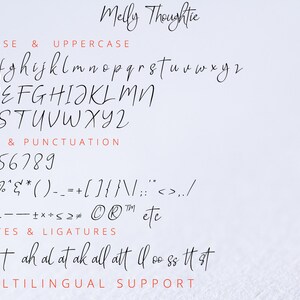 Melly Thoughtie
SE & UPPERCASE
ghijklmnopqrstuvwxyz
EFGHIJKLMN
STUVWXYZ
& PUNCTUATION
56789
%^&*()-_=+[]{}\|;:'"<>,./
—–—±×÷≤≥≠ ©®™ etc
ES & LIGATURES
t ah al at ak all att ll oo ss tt st
LTILINGUAL SUPPORT